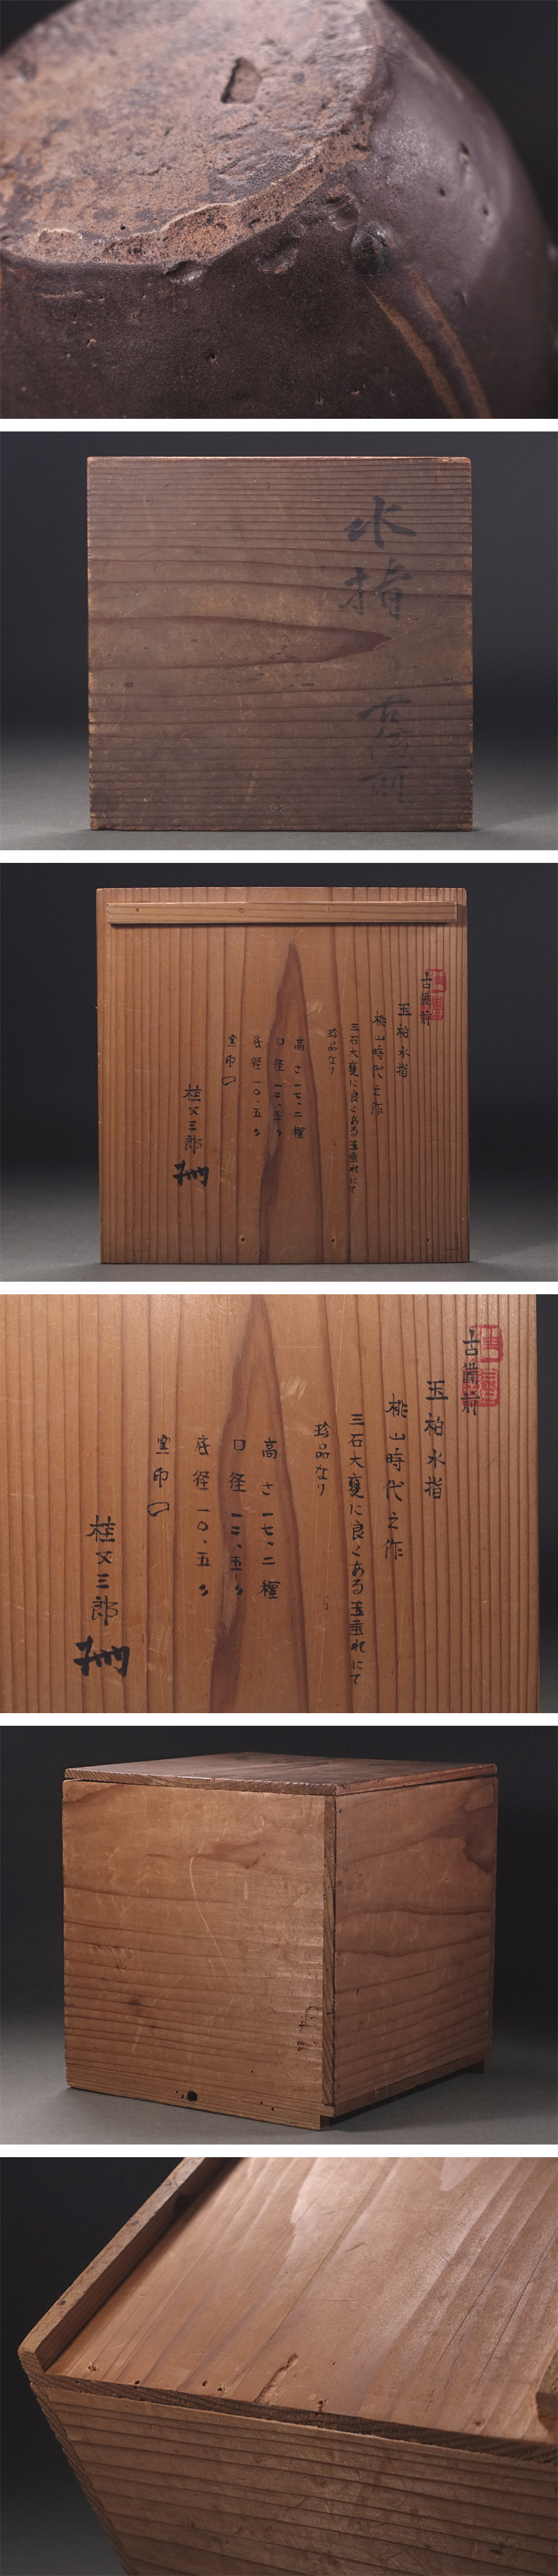 水指 古備前
古備前
玉柏水指
桃山時代之作
三石大甕に良くある玉垂れにて
珍品なり
高さ一七、二糎
口径一二、五〃
底径一〇、五〃
窯印
桂又三郎
古備前
玉柏水指
桃山時代之作
三石大甕に良くある玉垂れにて
珍品なり
高さ一七、二糎
口径一二、五〃
底径一〇、五〃
窯印
桂又三郎